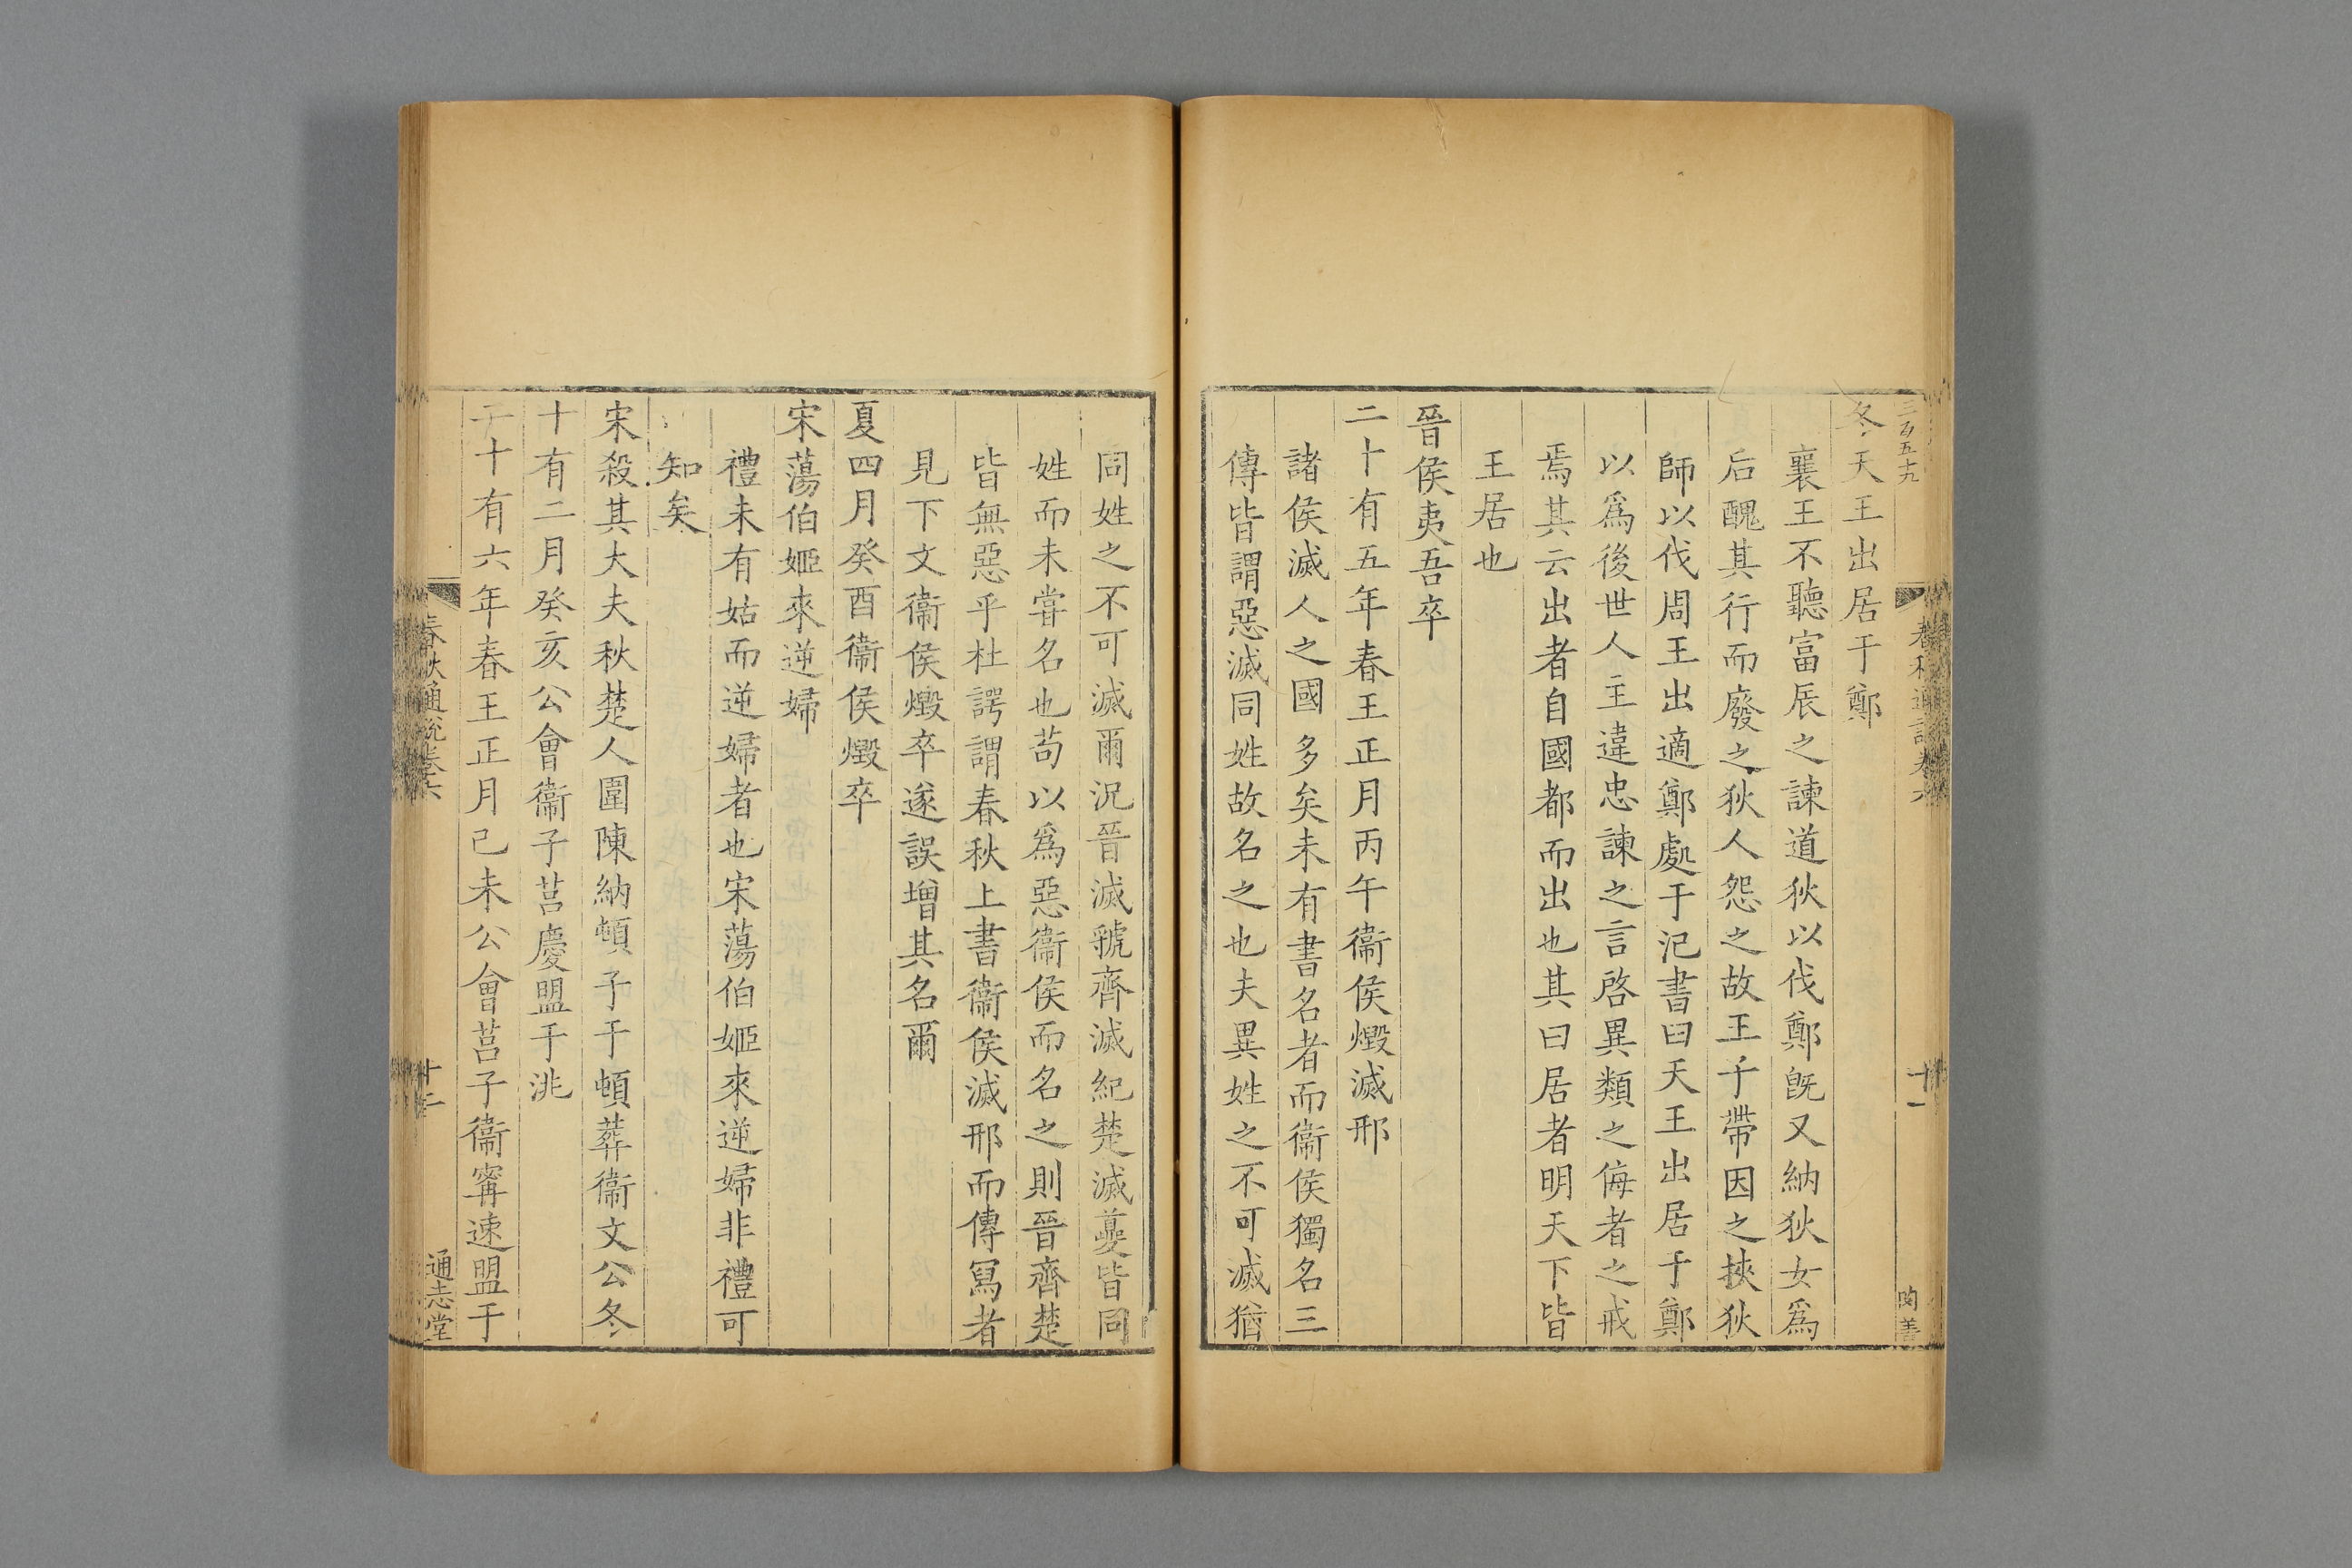 三百五十九
春秋通説卷六
十一
陶善
冬天王出居于鄭
襄王不聽富辰之諫道狄以伐鄭旣又納狄女爲
后醜其行而廢之狄人怨之故王子帶因之挾狄
師以伐周王出適鄭處于汜書曰天王出居于鄭
以爲後世人主違忠諫之言啓異類之侮者之戒
焉其云出者自國都而出也其曰居者明天下皆
王居也
晉侯夷吾卒
二十有五年春王正月丙午衞侯燬滅邢
諸侯滅人之國多矣未有書名者而衞侯獨名三
傳皆謂惡滅同姓故名之也夫異姓之不可滅猶
同姓之不可滅爾況晉滅虢齊滅紀楚滅夔皆同
姓而未甞名也茍以爲惡衞侯而名之則晉齊楚
皆無惡乎杜諤謂春秋上書衞侯滅邢而傳冩者
見下文衞侯燬卒遂誤增其名爾
夏四月癸酉衞侯燬卒
宋蕩伯姬來逆婦
禮未有姑而逆婦者也宋蕩伯姬來逆婦非禮可
知矣
宋殺其大夫秋楚人圍陳納頓子于頓葬衞文公冬
十有二月癸亥公會衞子莒慶盟于洮
十有六年春王正月己未公會莒子衞甯速盟于
春秋通說卷六
十二
通志堂